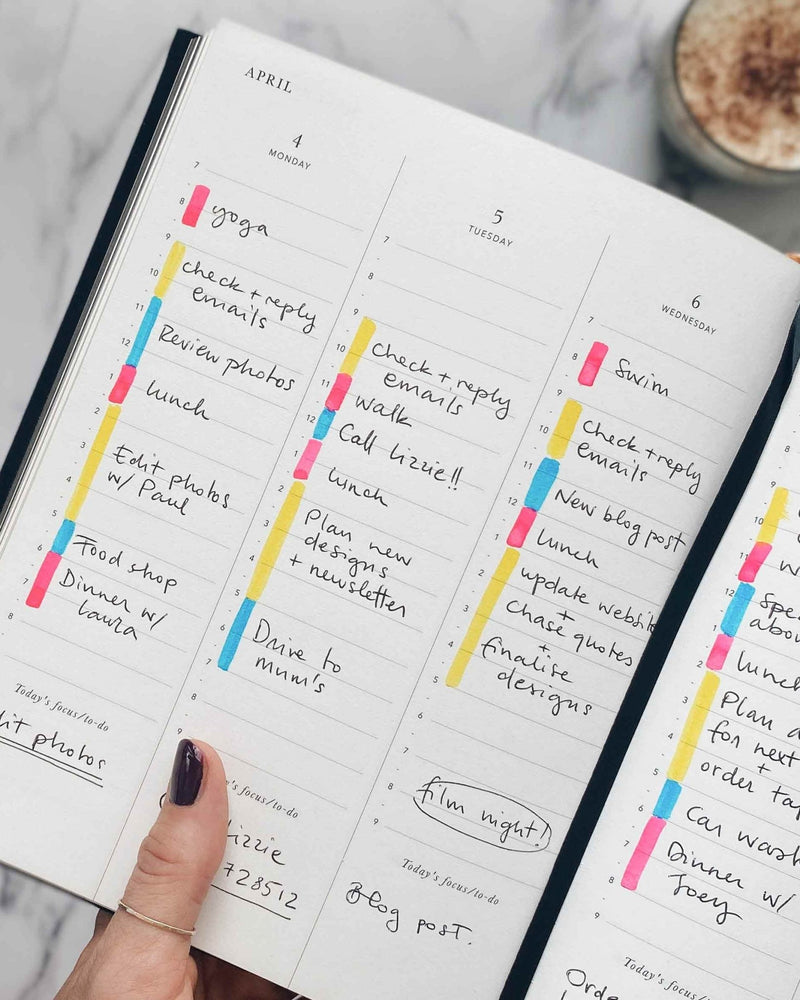 APRIL
4
MONDAY
7
8
yoga
9
check + reply
10
emails
11
Review photos
12
1
lunch
2
3
Edit photos
w/ Paul
4
5
Food shop
6
Dinner w/
Laura
7
8
Today's focus/to-do
photos
5
TUESDAY
7
8
9
check + reply
10
emails
11
walk
12
Call Lizzie!!
1
lunch
2
Plan new
3
designs
+ newsletter
4
5
6
Drive to
mum's
7
8
9
focus/to-do
Lizzie
728512
6
WEDNESDAY
7
8
Swim
9
Check + reply
10
emails
11
New blog post
12
1
lunch
2
update website
+
3
chase quotes
+
4
finalise
designs
5
6
7
8
film night!
9
Today's focus/to-do
Blog post.
8
9
10
11
12
abou
1
lunch
2
3
Plan
for next
+
4
order
5
Car wash
6
7
Dinner w/
Joey
8
9
Today's focus/to-do